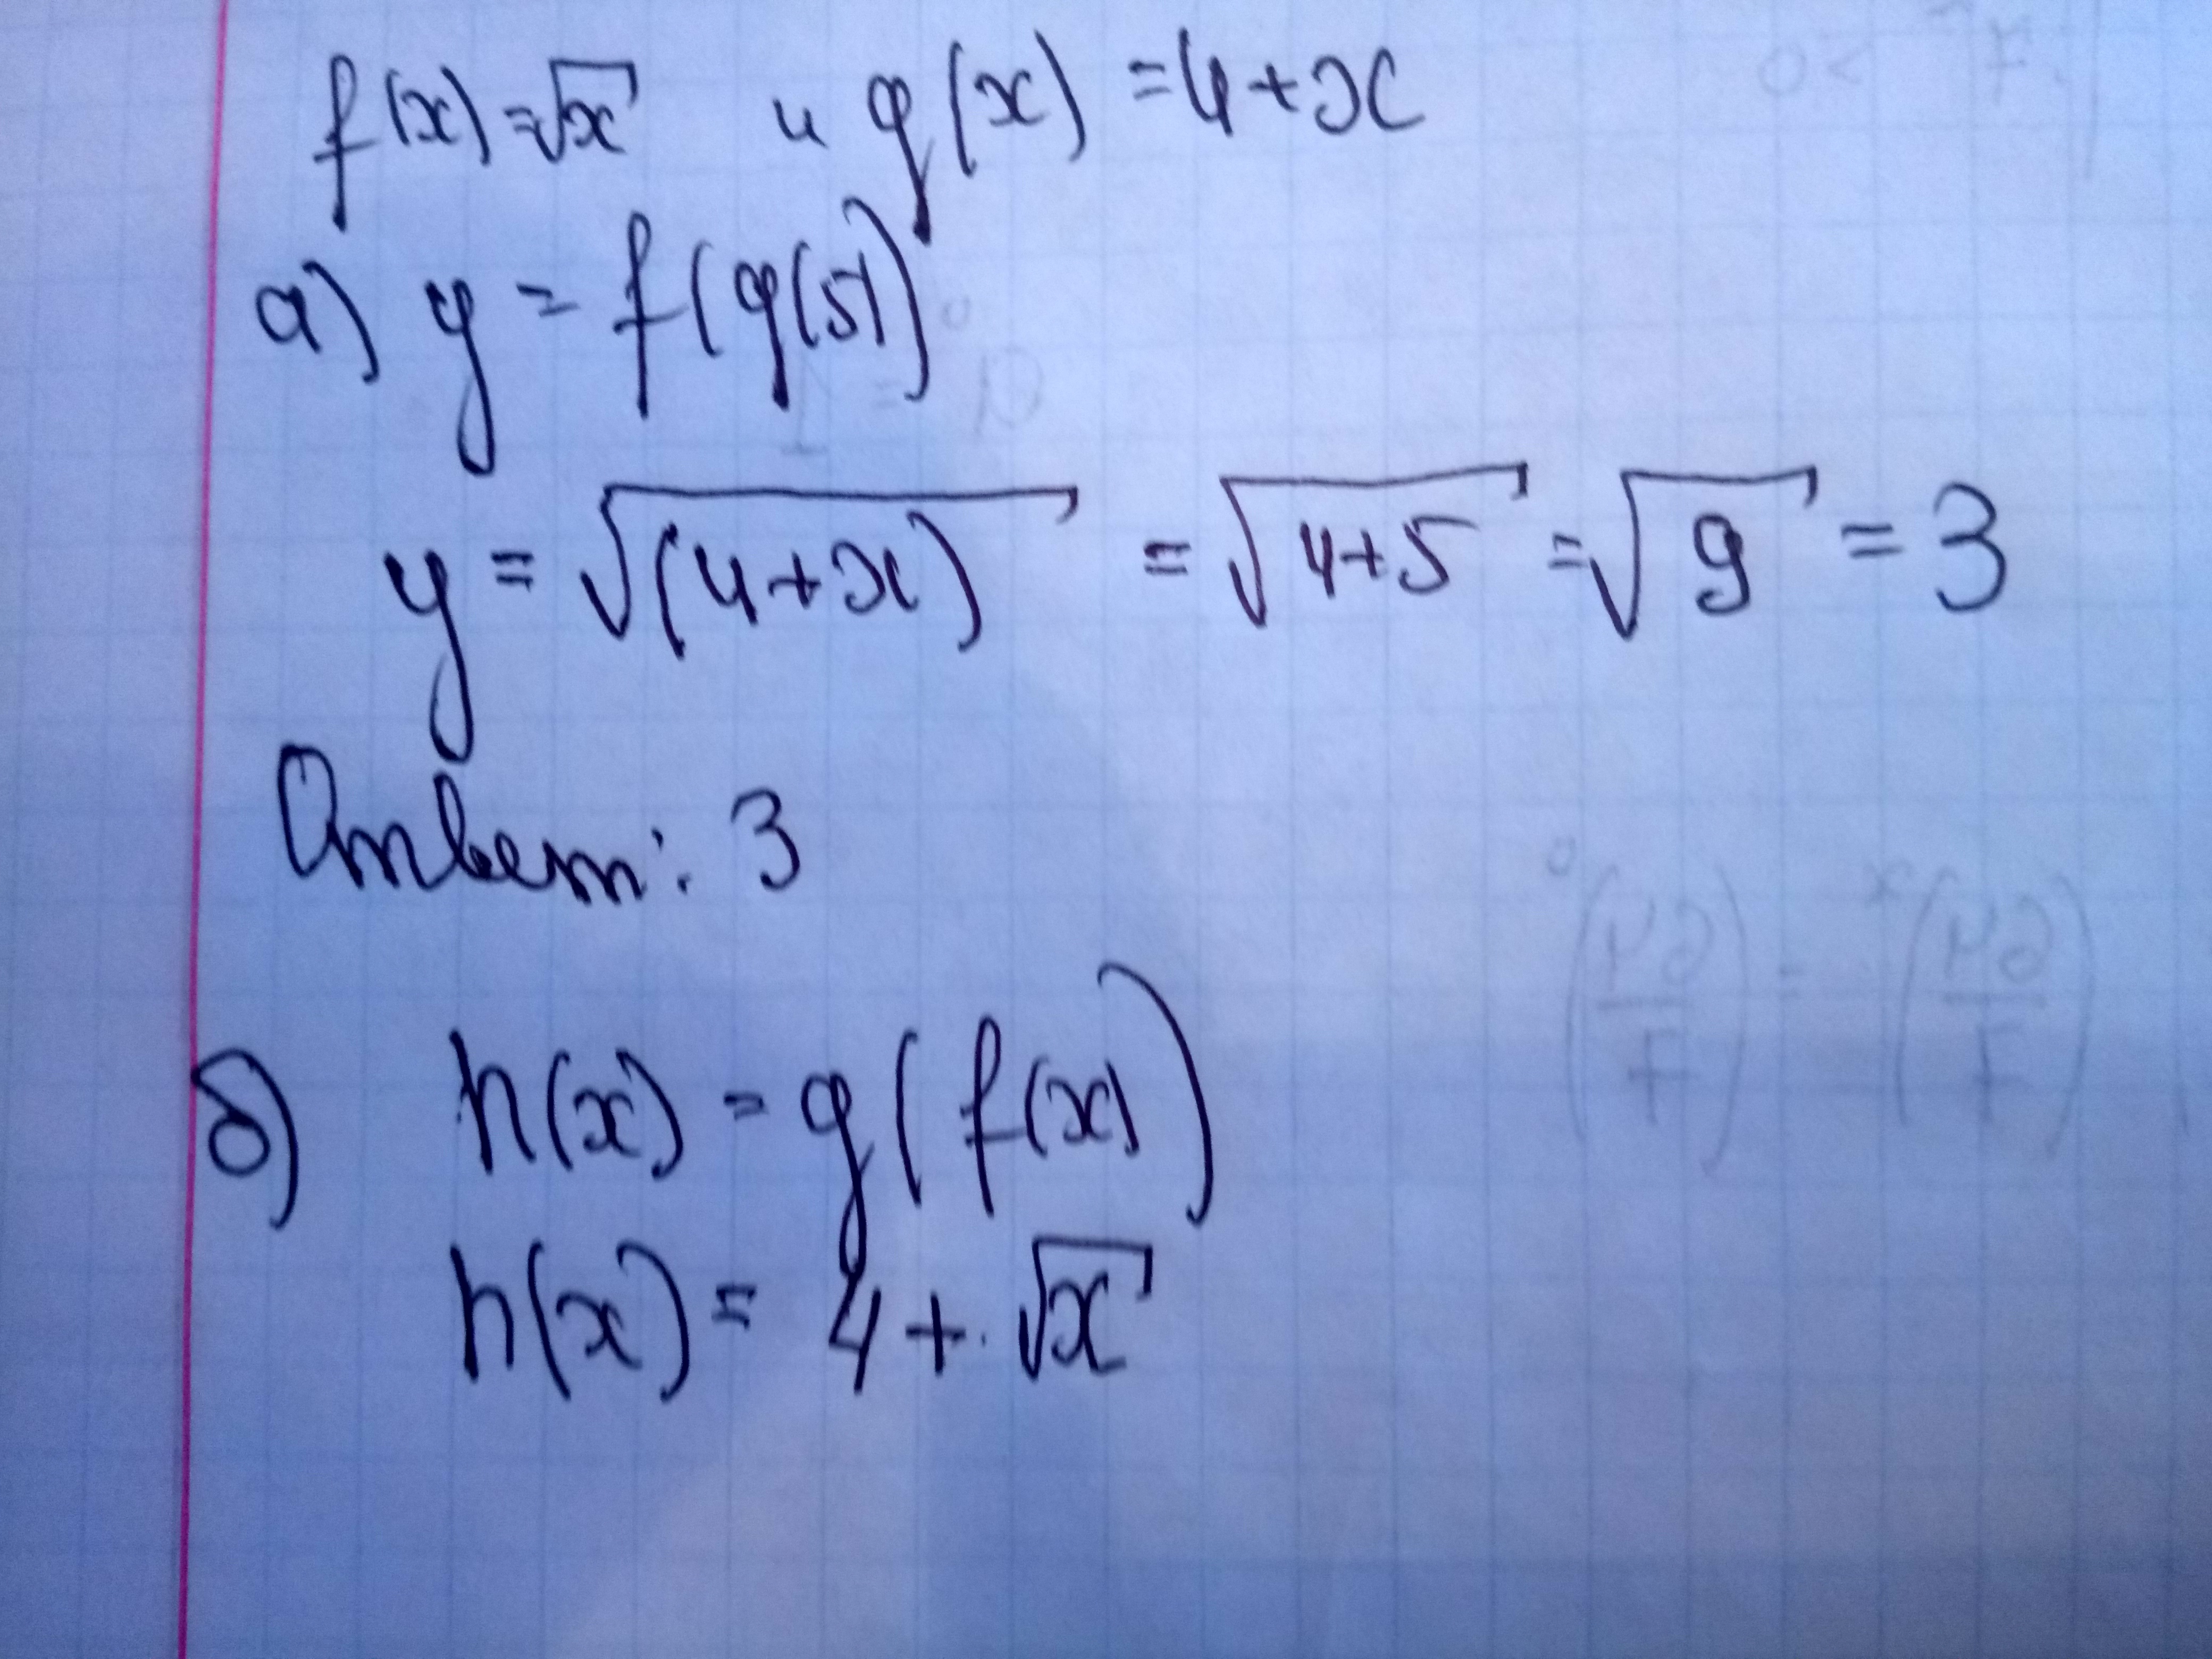 f(x)=√x и g(x)=4+x
а) y = f(g(5))
y = √(4+x) = √4+5 = √9 = 3
Ответ: 3
б) h(x) = g(f(x))
h(x) = 4 + √x